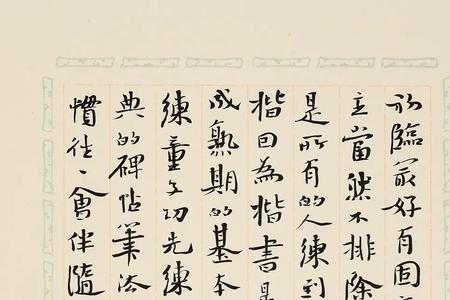 初臨最好有固
立當然不排除
是所有的人練到
楷因為楷書是
成熟期的基本
練童子功先練
典的碑帖筆法
慣往、會伴隨